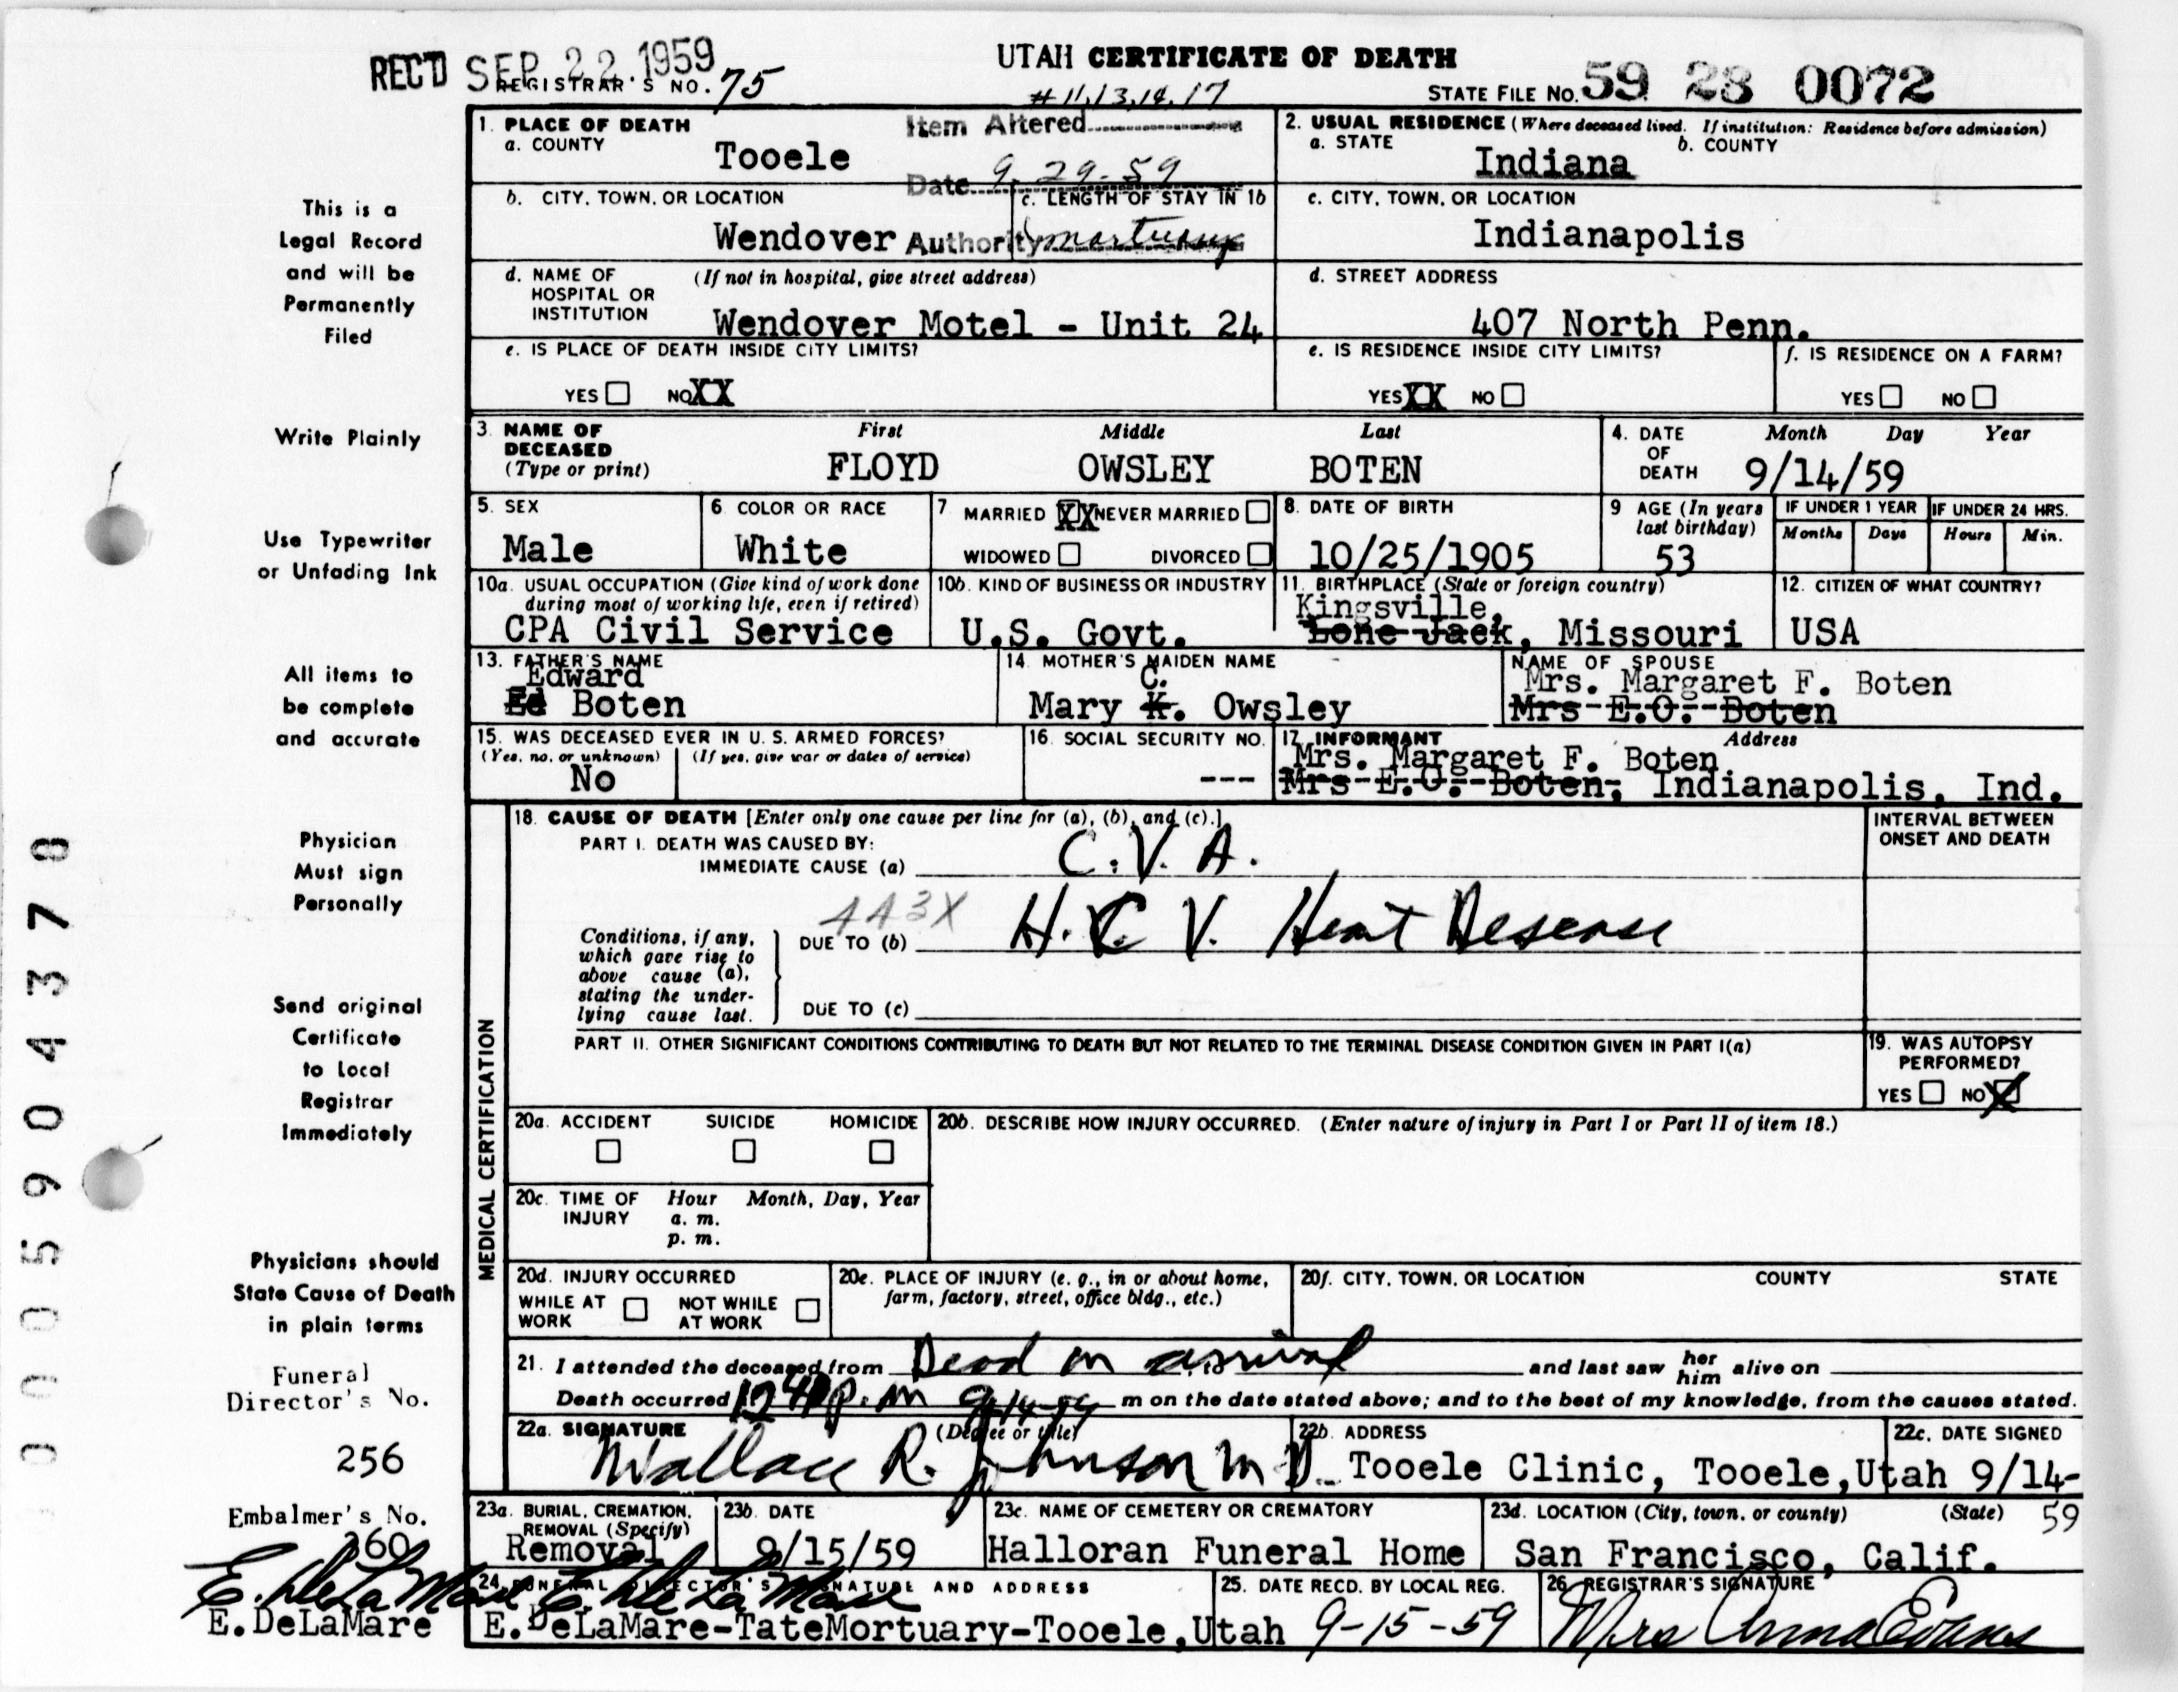 REC'D SEP 22 1959
UTAH CERTIFICATE OF DEATH
REGISTRAR'S NO. 75
# 11, 13, 14, 17
STATE FILE NO. 59 28 0072
1. PLACE OF DEATH
a. COUNTY
Tooele
Item Altered
Date 9-29-59
2. USUAL RESIDENCE (Where deceased lived. If institution: Residence before admission)
a. STATE
Indiana
b. COUNTY
b. CITY, TOWN, OR LOCATION
Wendover
c. LENGTH OF STAY IN 1b
Authority mortuary
c. CITY, TOWN, OR LOCATION
Indianapolis
d. NAME OF HOSPITAL OR INSTITUTION
(If not in hospital, give street address)
Wendover Motel - Unit 24
d. STREET ADDRESS
407 North Penn.
e. IS PLACE OF DEATH INSIDE CITY LIMITS?
YES NO XX
e. IS RESIDENCE INSIDE CITY LIMITS?
YES XX NO
f. IS RESIDENCE ON A FARM?
YES NO
3. NAME OF DECEASED (Type or print)
First Middle Last
FLOYD OWSLEY BOTEN
4. DATE OF DEATH
Month Day Year
9/14/59
5. SEX
Male
6 COLOR OR RACE
White
7 MARRIED XX NEVER MARRIED
WIDOWED DIVORCED
8. DATE OF BIRTH
10/25/1905
9 AGE (In years last birthday)
53
IF UNDER 1 YEAR
Months Days
IF UNDER 24 HRS.
Hours Min.
10a. USUAL OCCUPATION (Give kind of work done during most of working life, even if retired)
CPA Civil Service
10b. KIND OF BUSINESS OR INDUSTRY
U.S. Govt.
11. BIRTHPLACE (State or foreign country)
Kingsville,
Lone Jack, Missouri
12. CITIZEN OF WHAT COUNTRY?
USA
13. FATHER'S NAME
Edward
Ed Boten
14. MOTHER'S MAIDEN NAME
C.
Mary K. Owsley
NAME OF SPOUSE
Mrs. Margaret F. Boten
Mrs E.O. Boten
15. WAS DECEASED EVER IN U. S. ARMED FORCES?
(Yes, no, or unknown) (If yes, give war or dates of service)
No
16. SOCIAL SECURITY NO.
---
17. INFORMANT Address
Mrs. Margaret F. Boten
Mrs E.O. Boten, Indianapolis, Ind.
18. CAUSE OF DEATH [Enter only one cause per line for (a), (b), and (c).]
INTERVAL BETWEEN ONSET AND DEATH
PART I. DEATH WAS CAUSED BY:
IMMEDIATE CAUSE (a) C.V.A.
443X
Conditions, if any, which gave rise to above cause (a), stating the underlying cause last.
DUE TO (b) H.C.V. Heart Desease
DUE TO (c)
PART II. OTHER SIGNIFICANT CONDITIONS CONTRIBUTING TO DEATH BUT NOT RELATED TO THE TERMINAL DISEASE CONDITION GIVEN IN PART I(a)
19. WAS AUTOPSY PERFORMED?
YES NO X
MEDICAL CERTIFICATION
20a. ACCIDENT SUICIDE HOMICIDE
20b. DESCRIBE HOW INJURY OCCURRED. (Enter nature of injury in Part I or Part II of item 18.)
20c. TIME OF INJURY
Hour Month, Day, Year
a. m.
p. m.
20d. INJURY OCCURRED
WHILE AT WORK NOT WHILE AT WORK
20e. PLACE OF INJURY (e. g., in or about home, farm, factory, street, office bldg., etc.)
20f. CITY, TOWN, OR LOCATION COUNTY STATE
21. I attended the deceased from Dead on arrival and last saw her him alive on
Death occurred 12 40 p.m 9-14-59 m on the date stated above; and to the best of my knowledge, from the causes stated.
22a. SIGNATURE (Degree or title)
Wallace R. Johnson M D
22b. ADDRESS
Tooele Clinic, Tooele, Utah
22c. DATE SIGNED
9/14-59
23a. BURIAL, CREMATION, REMOVAL (Specify)
Removal
23b. DATE
9/15/59
23c. NAME OF CEMETERY OR CREMATORY
Halloran Funeral Home
23d. LOCATION (City, town, or county) (State)
San Francisco, Calif.
24. FUNERAL DIRECTOR'S SIGNATURE AND ADDRESS
E. DeLaMare
E. DeLaMare-TateMortuary-Tooele, Utah
25. DATE RECD. BY LOCAL REG.
9-15-59
26. REGISTRAR'S SIGNATURE
Mrs Anna Evans
This is a
Legal Record
and will be
Permanently
Filed
Write Plainly
Use Typewriter
or Unfading Ink
All items to
be complete
and accurate
Physician
Must sign
Personally
Send original
Certificate
to Local
Registrar
Immediately
Physicians should
State Cause of Death
in plain terms
Funeral
Director's No.
256
Embalmer's No.
360
E. DeLaMare
E. DeLaMare
0005904378